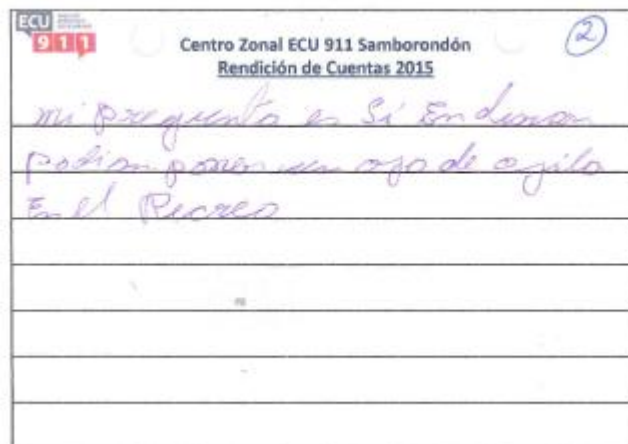 ECU
911
Centro Zonal ECU 911 Samborondón
Rendición de Cuentas 2015
2
mi pregunta es Si En
podian poner un ojo de agila
En el Recreo